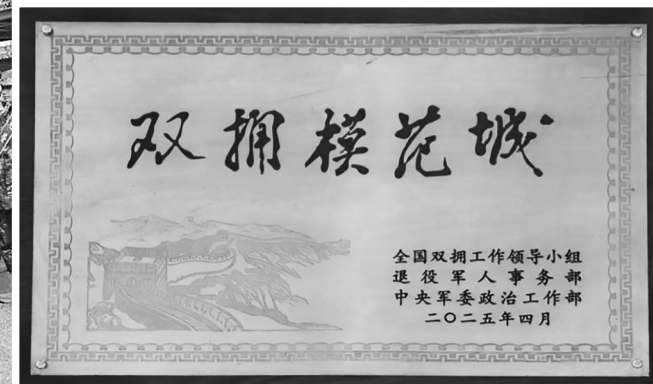 双拥模范城
全国双拥工作领导小组
退役军人事务部
中央军委政治工作部
二〇二五年四月